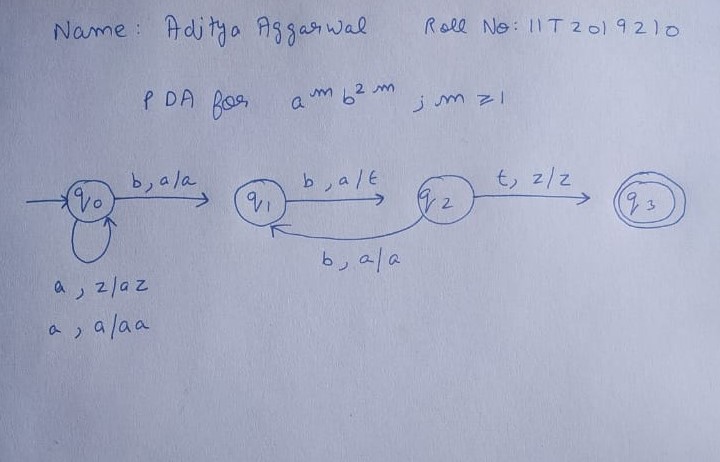 Name: Aditya Aggarwal Roll No: IIT2019210
PDA for a^m b^2m ; m ≥ 1
b, a/a b, a/t t, z/z
q0 q1 q2 q3
b, a/a
a, z/az
a, a/aa